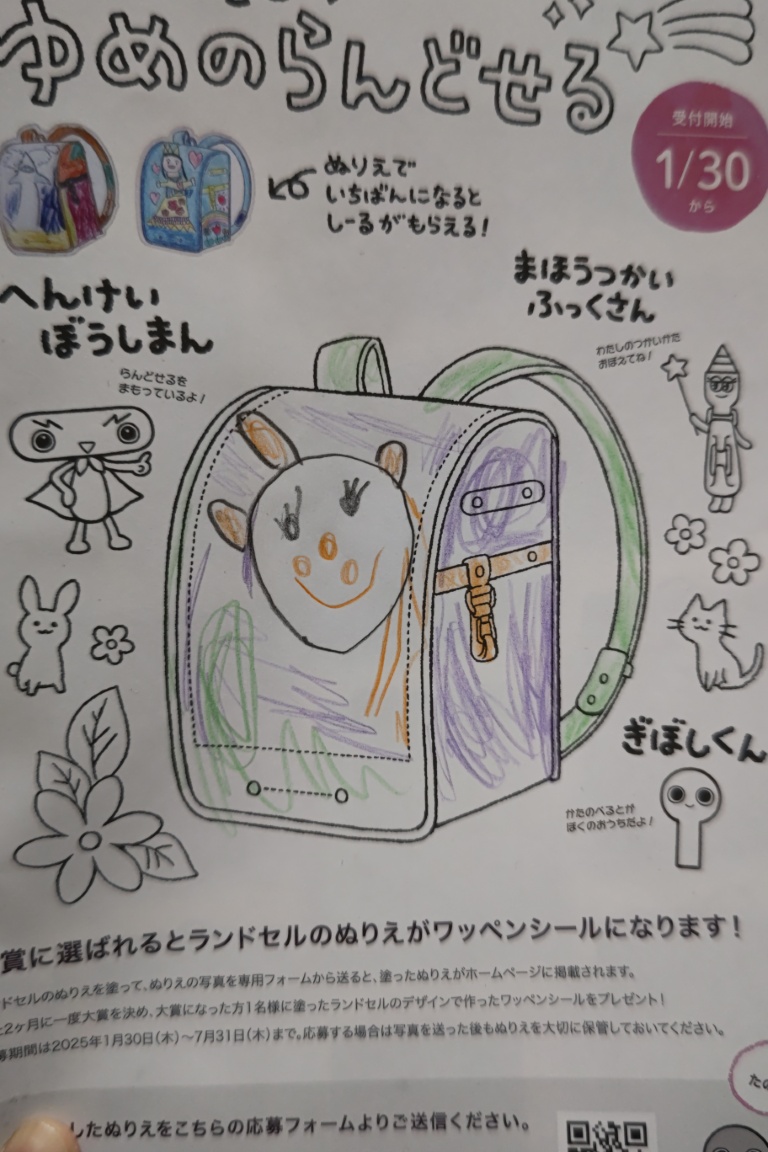 ゆめのらんどせる
受付開始
1/30
から
ぬりえで
いちばんになると
しーるがもらえる!
へんけい
ぼうしまん
らんどせるを
まもっているよ!
まほうつかい
ふっくさん
わたしのつかいかた
おぼえてね!
ぎぼしくん
かたのべるとが
ぼくのおうちだよ!
賞に選ばれるとランドセルのぬりえがワッペンシールになります!
ドセルのぬりえを塗って、ぬりえの写真を専用フォームから送ると、塗ったぬりえがホームページに掲載されます。
2ヶ月に一度大賞を決め、大賞になった方1名様に塗ったランドセルのデザインで作ったワッペンシールをプレゼント!
募期間は2025年1月30日(木)〜7月31日(木)まで。応募する場合は写真を送った後もぬりえを大切に保管しておいてください。
したぬりえをこちらの応募フォームよりご送信ください。